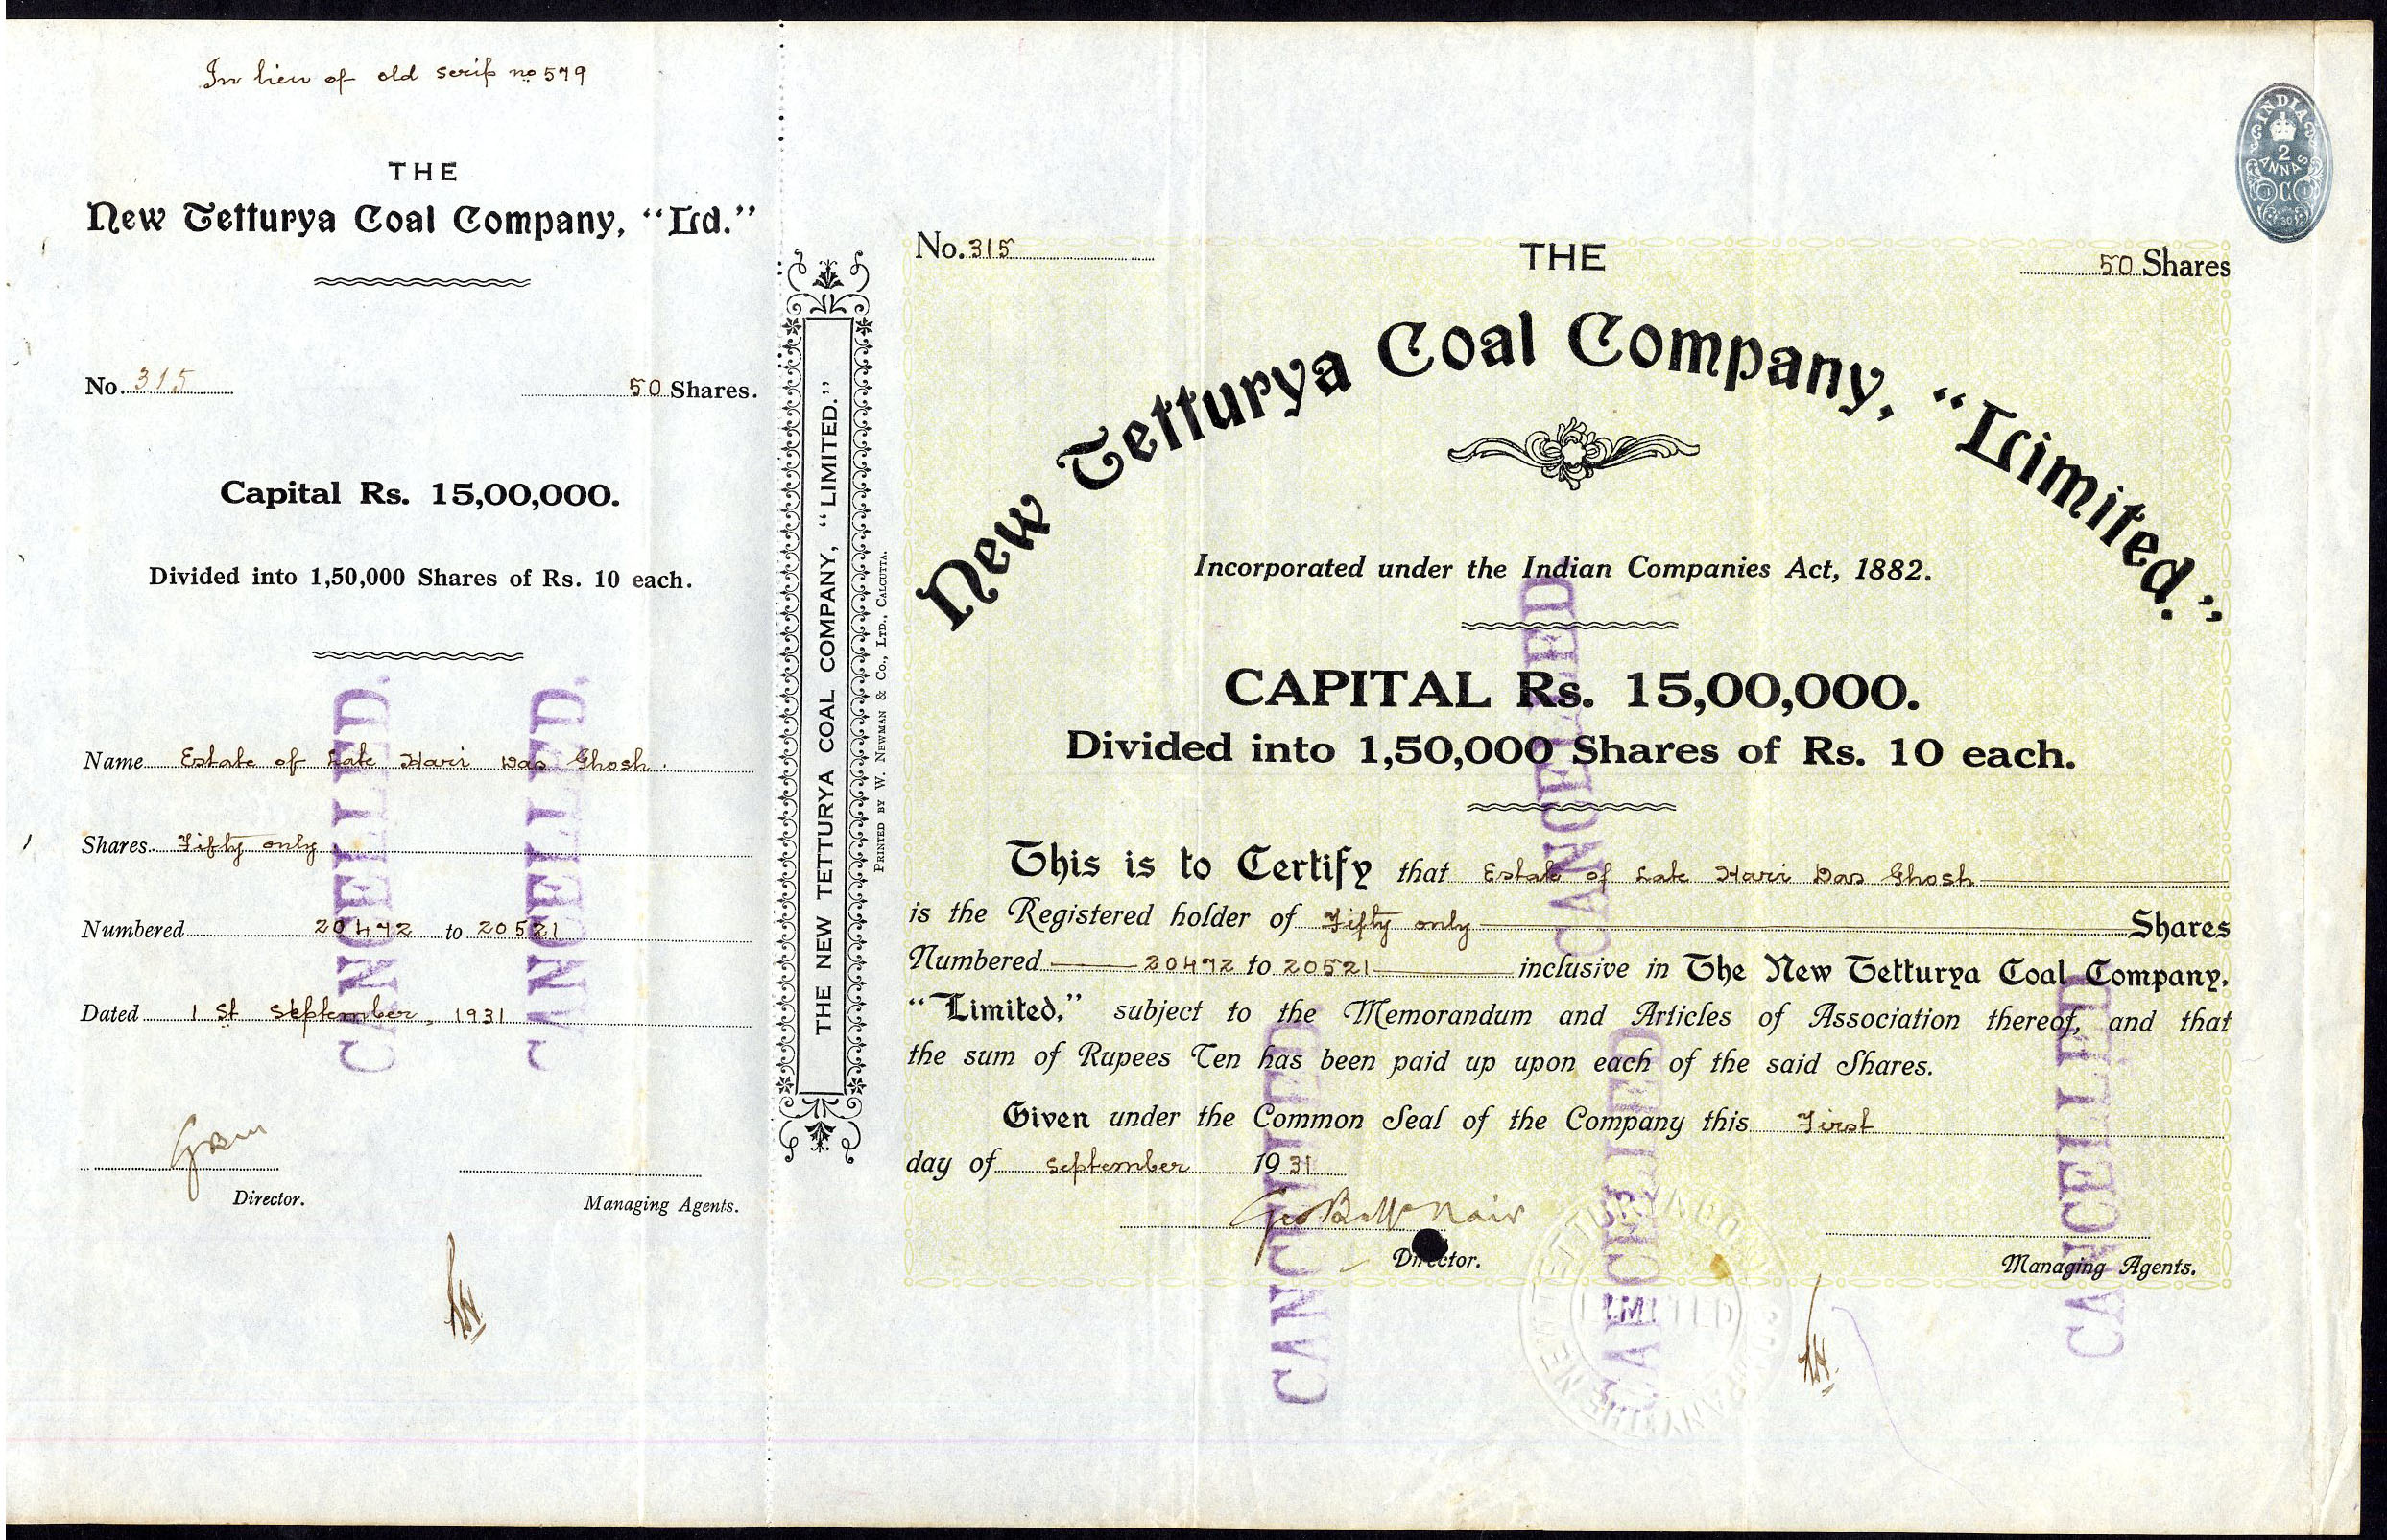 In lieu of old scrip no 579
THE
New Tetturya Coal Company, "Ltd."
No. 315 50 Shares.
Capital Rs. 15,00,000.
Divided into 1,50,000 Shares of Rs. 10 each.
Name Estate of Late Hari Das Ghosh.
Shares Fifty only
Numbered 20472 to 20521
Dated 1st September, 1931
Director.
Managing Agents.
CANCELLED.
CANCELLED.
THE NEW TETTURYA COAL COMPANY, "LIMITED."
PRINTED BY W. NEWMAN & CO., LTD., CALCUTTA.
INDIA
2
ANNAS
No. 315 THE 50 Shares
New Tetturya Coal Company, "Limited."
Incorporated under the Indian Companies Act, 1882.
CAPITAL Rs. 15,00,000.
Divided into 1,50,000 Shares of Rs. 10 each.
This is to Certify that Estate of Late Hari Das Ghosh
is the Registered holder of Fifty only Shares
Numbered 20472 to 20521 inclusive in The New Tetturya Coal Company,
"Limited," subject to the Memorandum and Articles of Association thereof, and that
the sum of Rupees Ten has been paid up upon each of the said Shares.
Given under the Common Seal of the Company this First
day of September 1931
Director.
Managing Agents.
CANCELLED
CANCELLED
CANCELLED
CANCELLED
LIMITED